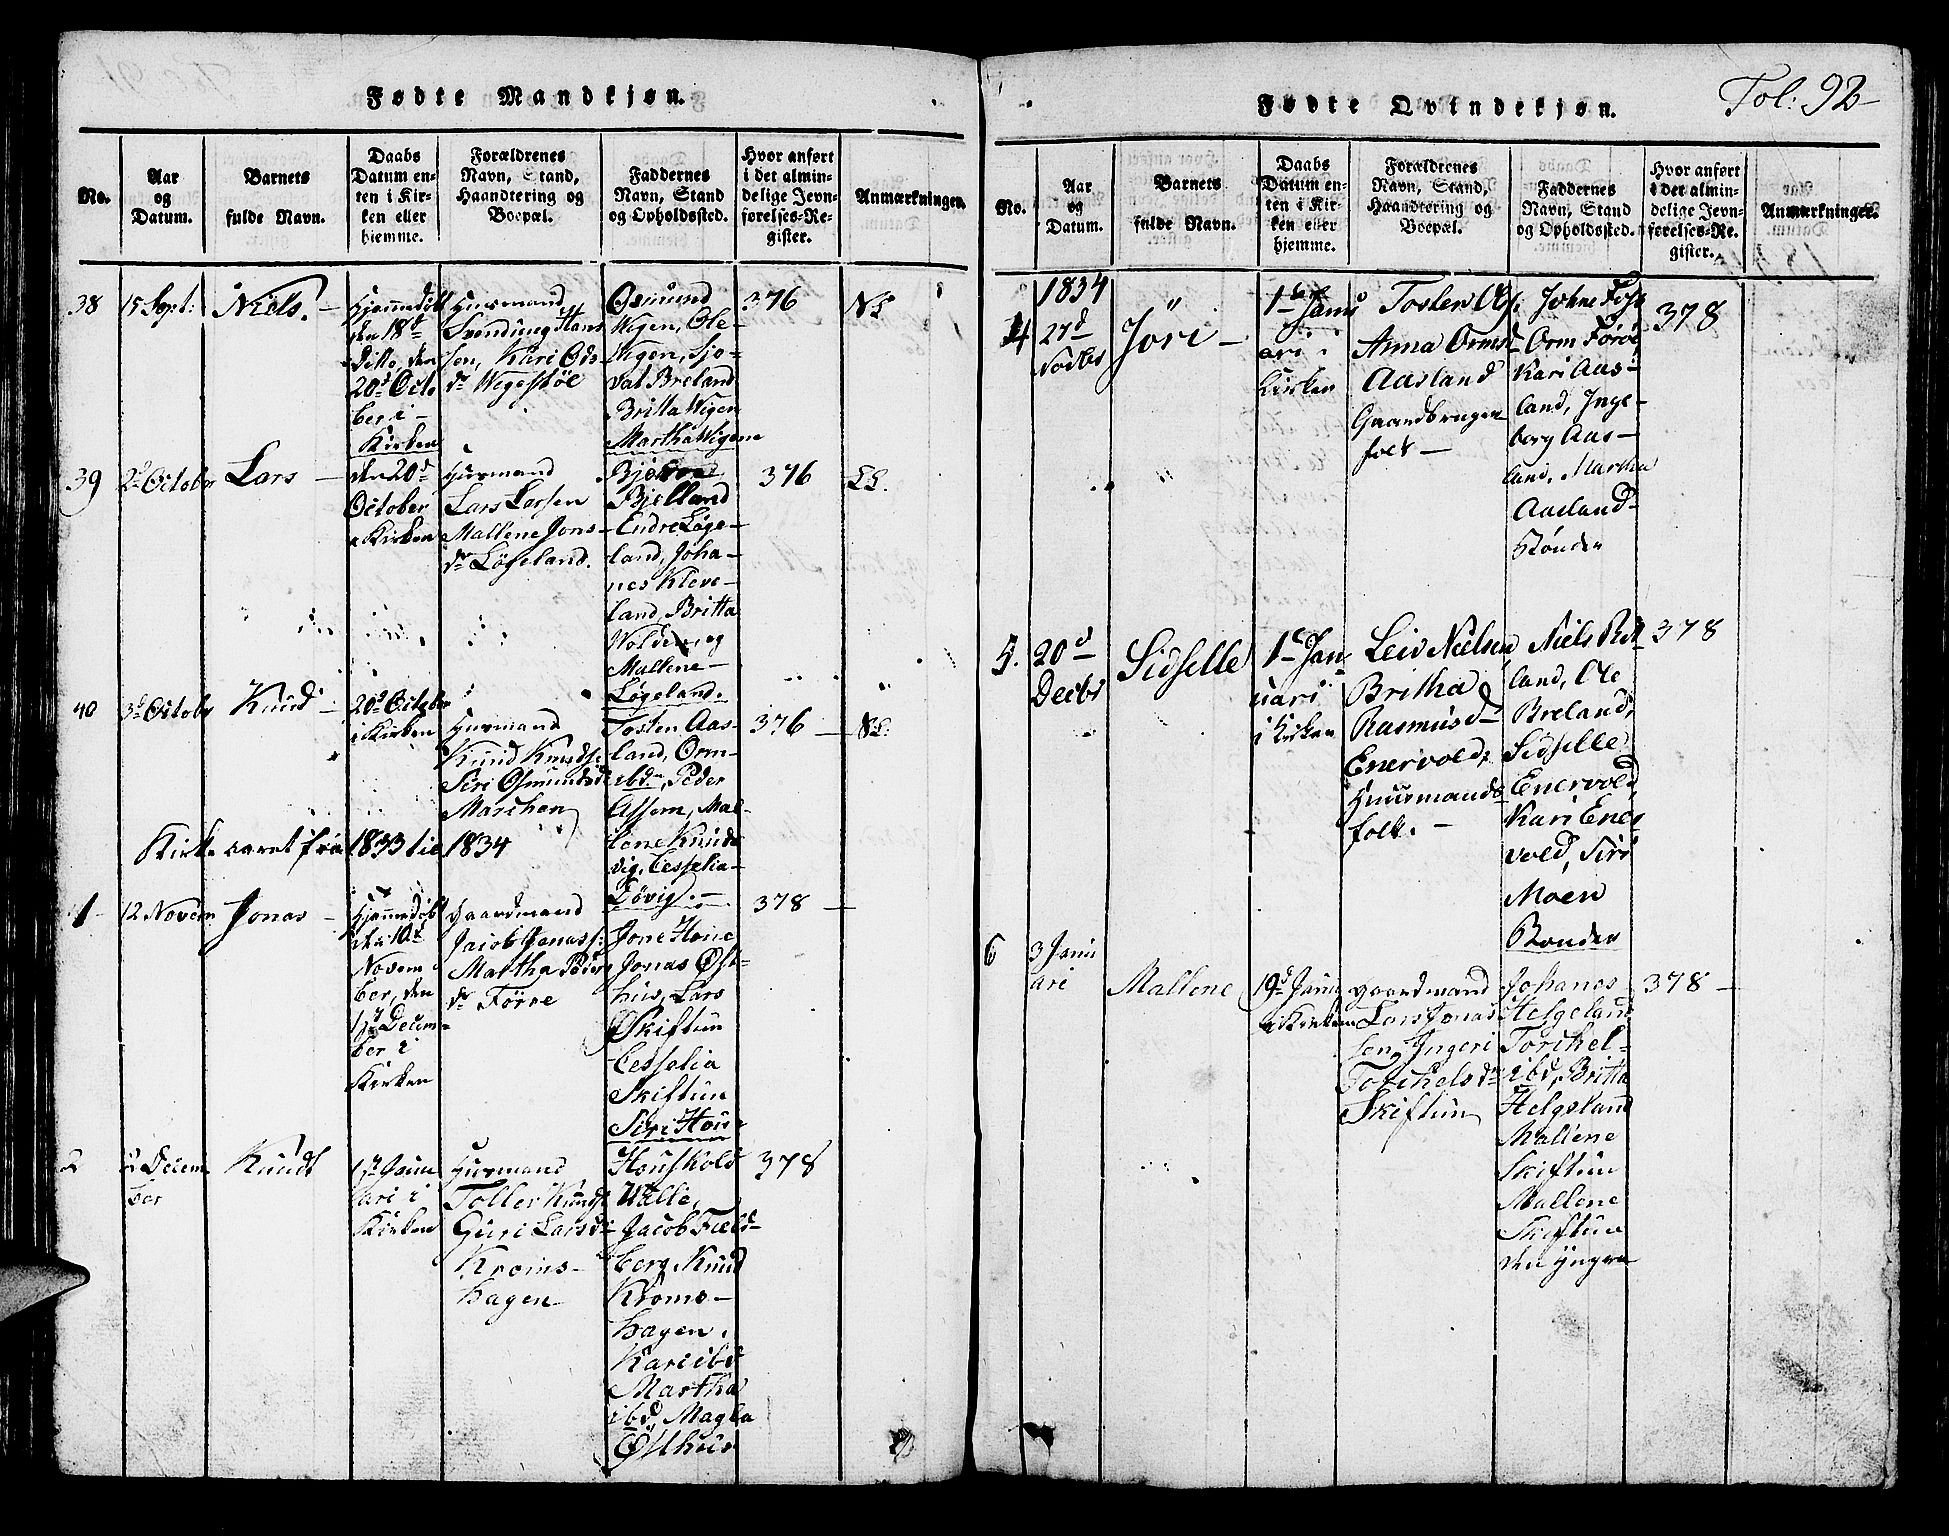 Fødte Mandkjøn.
No.
Aar
og
Datum.
Barnets
fulde Navn.
Daabs
Datum en-
ten i Kir-
ken eller
hjemme.
Forældrenes
Navn, Stand,
Haandtering og
Boepæl.
Faddernes
Navn, Stand
og Opholdssted.
Hvor anført
i det almin-
delige Jevn-
førelses-Re-
gister.
Anmærkninger.
38
15 Sept:
Niels.
Hjemmedöbt
den 18d
Ditto, den
20d Octo
ber i
Kirken
Huusmand
Svendung Hans
sen, Kari Ods
dr Wegestöe
Osmund
Wigen, Ole
Wigen, Sjo-
vat Breland
Britta Wigen
Martha Wigene
376
39
2d October
Lars
den 20d
October
i Kirken
Huusmand
Lars Larsen
Mallene Jons-
dr Lögeland.
Bjelland
Endre Löge-
land, Joha-
nes Kleve-
land, Britta
Wolden, og
Mallene
Lögeland.
376
40
3d Octobr
Knud
20d October
i Kirken
Huusmand
Knud Knuds:
Siri Osmundsd
Marchen
Tosten Aas-
land, Orm
ibdm, Peder
Assem, Mal-
lene Knuds
vig, Cesselia
Lövig.
376
Kirkeaaret fra 1833 til 1834
1
12 Novem
Jonas
Hjemmedöbt
den 10d
Novem
ber, den
1st Decem
ber i
Kirken
Gaardmand
Jacob Jonass:
Martha Peders
dr Förre
Jone Houe
Jonas Öst-
hus, Lars
Skiftun
Cesselia
Skiftun
Siri Hou
378
2
2 Decem
ber
Knudt
1st Janu
ari i
Kirken
Huusmand
Toller Knuds
Guri Larsd
Kroms-
hagen
Houskold
Walle,
Jacob Fæld-
berg, Knud
Kroms-
hagen,
Kari ibd
Martha
ibd, Magla
Östhus
378
Fødte Qvindekjøn.
Fol: 92
No.
Aar
og
Datum.
Barnets
fulde Navn.
Daabs
Datum en-
ten i Kir-
ken eller
hjemme.
Forældrenes
Navn, Stand,
Haandtering og
Boepæl.
Faddernes
Navn, Stand
og Opholdssted.
Hvor anført
i det almin-
delige Jevn-
førelses-Re-
gister.
Anmærkninger.
4
1834
27d
Novbr
Jöri
1ste Janu
ari i
Kirken
Tosten Ols:
Anna Ormsd
Aasland
Gaardbruger
folk
Johne
Orm Föröe
Kari Aas-
land, Inge-
borg Aas-
land, Martha
Aasland
Bönder
378
5.
20d
Decbr
Sidselle
1st Jan
uari
i Kirken
Leiv Nielsen
Britha
Rasmusd
Enervold,
Huusmands
folk.
Niels
land, Ole
Breland,
Sidselle
Enervold
Kari Ener
vold, Siri
Moen
Bönder
378
6
3 Janu
ari
Mallene
19d Janu
i Kirken
Gaardmand
Lars Jonas
sen, Ingeri
Torkelsdr
Skiftun
Johanes
Helgeland
Torchel
ibd, Britta
Helgeland
Mallene
Skiftun
Mallene
Skiftun
den yngre
378